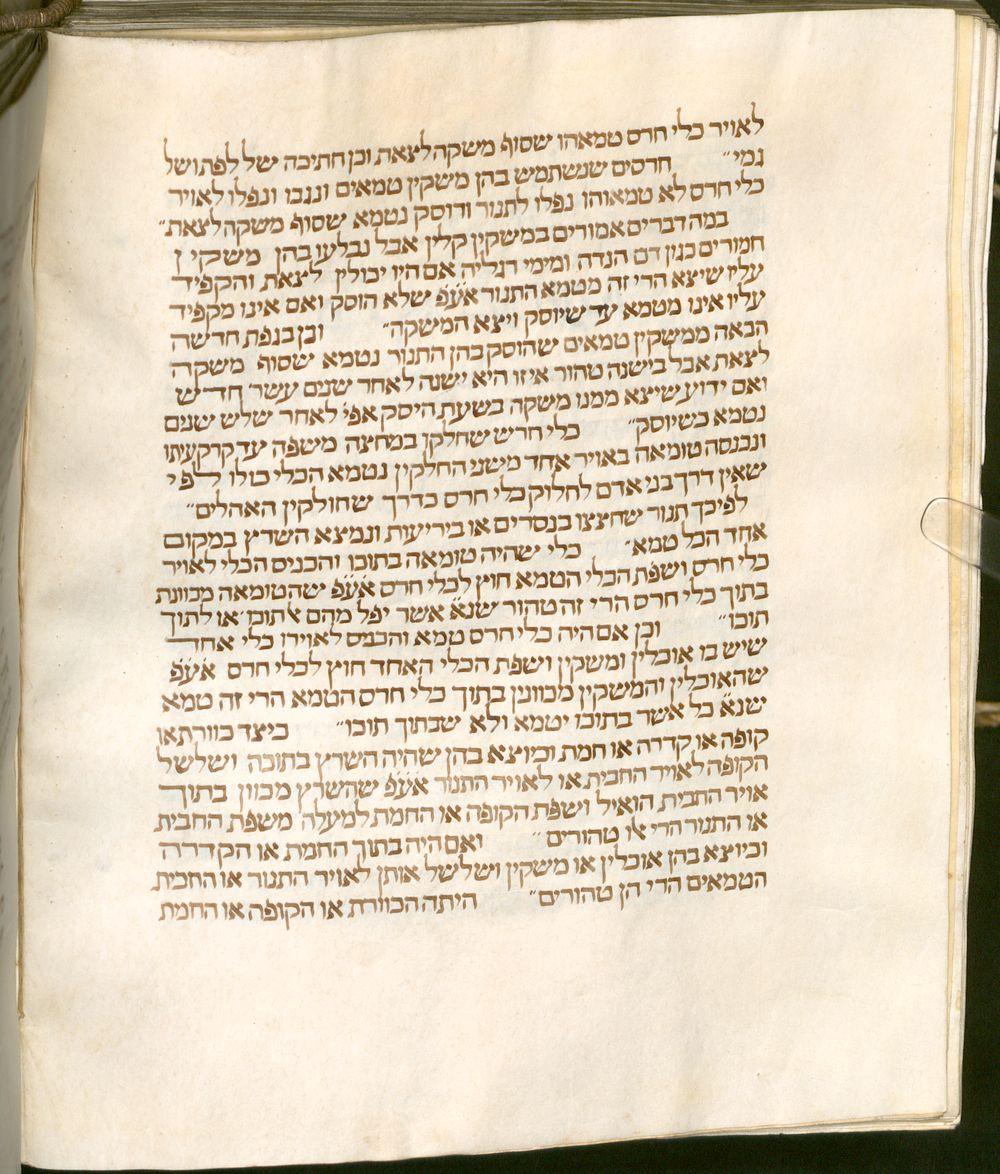 לאויר כלי חרס טמאהו שסוף משקה לצאת וכן חתיכה של לפת ושל
גמי״ חרסים שנשתמש בהן משקין טמאים ונגבו ונפלו לאויר
כלי חרס לא טמאוהו נפלו לתנור והוסק נטמא שסוף משקה לצאת״
במה דברים אמורים במשקין קלין אבל נבלעו בהן משקין
חמורים כגון דם הנדה ומימי רגליה אם היו יכולין לצאת והקפיד
עליו שיצא הרי זה מטמא התנור אע״פ שלא הוסק ואם אינו מקפיד
עליו אינו מטמא עד שיוסק ויצא המשקה״ וכן בגפת חדשה
הבאה ממשקין טמאים שהוסק בהן התנור נטמא שסוף משקה
לצאת אבל בישנה טהור איזו היא ישנה לאחר שנים עשר חדש
ואם ידוע שיצא ממנו משקה בשעת היסק אפי׳ לאחר שלש שנים
נטמא כשיוסק״ כלי חרש שחלקן במחצה משפה עד קרקעיתו
ונכנסה טומאה באויר אחד משני החלקין נטמא הכלי כולו לפי
שאין דרך בני אדם לחלוק כלי חרס כדרך שחולקין האהלים״
לפיכך תנור שחצצו בנסרים או ביריעות ונמצא השרץ במקום
אחד הכל טמא״ כלי שהיה טומאה בתוכו והכניס הכלי לאויר
כלי חרס ושפת הכלי הטמא חוץ לכלי חרס אע״פ שהטומאה מכוונת
בתוך כלי חרס הרי זה טהור שנא׳ אשר יפל מהם אל תוכו ׳או לתוך
תוכו״ וכן אם היה כלי חרס טמא והכניס לאוירו כלי אחד
שיש בו אוכלין ומשקין ושפת הכלי האחד חוץ לכלי חרס אע״פ
שהאוכלין והמשקין מכוונין בתוך כלי חרס הטמא הרי זה טמא
שנא׳ כל אשר בתוכו יטמא ולא שבתוך תוכו״ כיצד כוורת או
קופה או קדרה או חמת וכיוצא בהן שהיה השרץ בתוכה ושלשל
הקופה לאויר החבית או לאויר התנור אע״פ שהשרץ מכוון בתוך
אויר החבית הואיל ושפת הקופה או החמת למעלה משפת החבית
או התנור הרי אלו טהורים״ ואם היה בתוך החמת או הקדרה
וכיוצא בהן אוכלין או משקין ושלשל אותן לאויר התנור או החבית
הטמאים הרי הן טהורים״ היתה הכוורת או הקופה או החמת